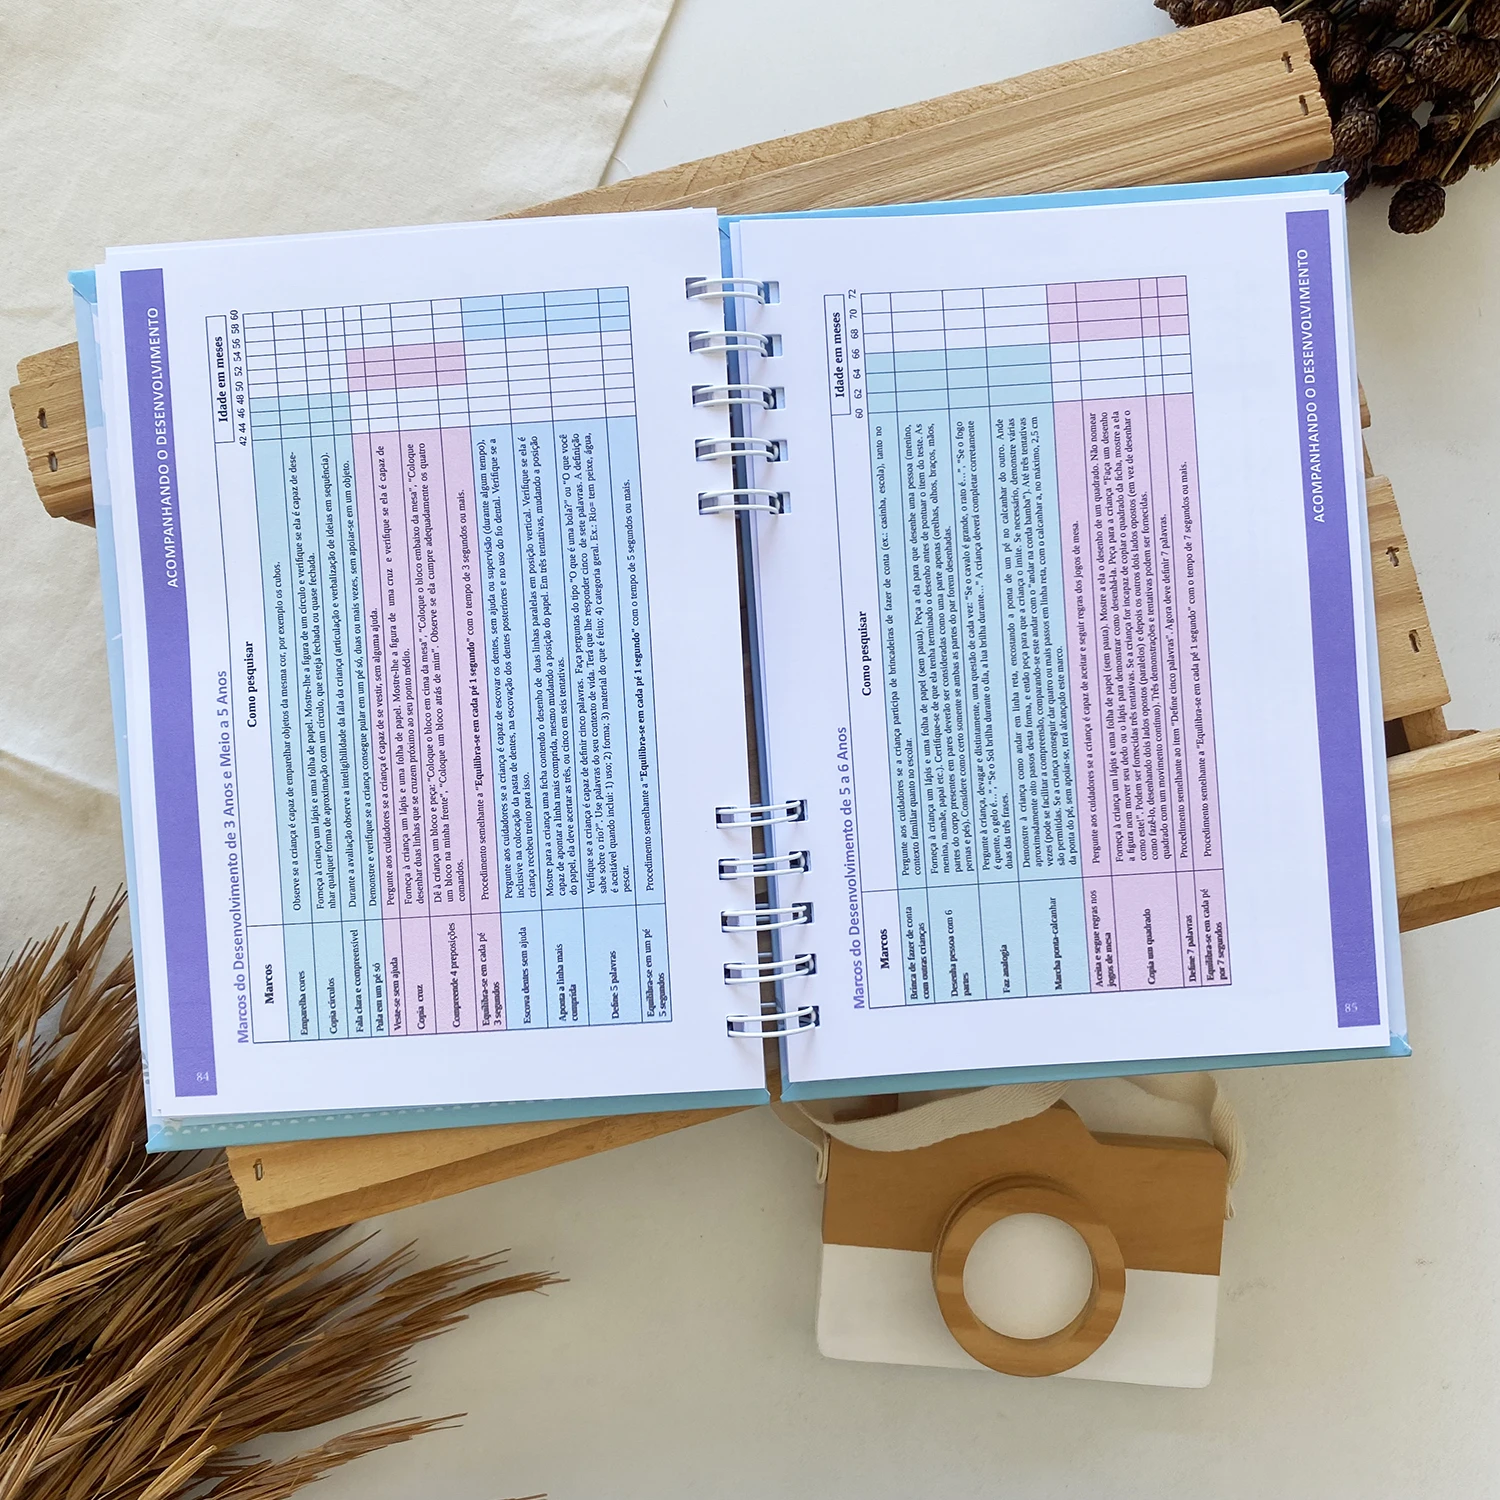 ACOMPANHANDO O DESENVOLVIMENTO
84
Marcos do Desenvolvimento de 3 Anos e Meio a 5 Anos
Marcos
Como pesquisar
Idade em meses
42 44 46 48 50 52 54 56 58 60
Emparelha cores
Observe se a criança é capaz de emparelhar objetos da mesma cor, por exemplo os cubos.
Copia círculos
Forneça à criança um lápis e uma folha de papel. Mostre-lhe a figura de um círculo e verifique se ela é capaz de dese-
nhar qualquer forma de aproximação com um círculo, que esteja fechada ou quase fechada.
Fala clara e compreensível
Durante a avaliação observe a inteligibilidade da fala da criança (articulação e verbalização de ideias em sequência).
Pula em um pé só
Demonstre e verifique se a criança consegue pular em um pé só, duas ou mais vezes, sem apoiar-se em um objeto.
Veste-se sem ajuda
Pergunte aos cuidadores se a criança é capaz de se vestir, sem alguma ajuda.
Copia cruz
Forneça à criança um lápis e uma folha de papel. Mostre-lhe a figura de uma cruz e verifique se ela é capaz de
desenhar duas linhas que se cruzem próximo ao seu ponto médio.
Compreende 4 preposições
Dê à criança um bloco e peça: "Coloque o bloco em cima da mesa", "Coloque o bloco embaixo da mesa", "Coloque
um bloco na minha frente", "Coloque um bloco atrás de mim". Observe se ela cumpre adequadamente os quatro
comandos.
Equilibra-se em cada pé
3 segundos
Procedimento semelhante a "Equilibra-se em cada pé 1 segundo" com o tempo de 3 segundos ou mais.
Escova dentes sem ajuda
Pergunte aos cuidadores se a criança é capaz de escovar os dentes, sem ajuda ou supervisão (durante algum tempo),
inclusive na colocação da pasta de dentes, na escovação dos dentes posteriores e no uso do fio dental. Verifique se a
criança recebeu treino para isso.
Aponta a linha mais
comprida
Mostre para a criança uma ficha contendo o desenho de duas linhas paralelas em posição vertical. Verifique se ela é
capaz de apontar a linha mais comprida, mesmo mudando a posição do papel. Em três tentativas, mudando a posição
do papel, ela deve acertar as três, ou cinco em seis tentativas.
Define 5 palavras
Verifique se a criança é capaz de definir cinco palavras. Faça perguntas do tipo "O que é uma bola?" ou "O que você
sabe sobre o rio?". Use palavras do seu contexto de vida. Terá que lhe responder cinco de sete palavras. A definição
é aceitável quando inclui: 1) uso; 2) forma; 3) material do que é feito; 4) categoria geral. Ex.: Rio= tem peixe, água,
pescar.
Equilibra-se em um pé
5 segundos
Procedimento semelhante a "Equilibra-se em cada pé 1 segundo" com o tempo de 5 segundos ou mais.
Marcos do Desenvolvimento de 5 a 6 Anos
Marcos
Como pesquisar
Idade em meses
60 62 64 66 68 70 72
Brinca de fazer de conta
com outras crianças
Pergunte aos cuidadores se a criança participa de brincadeiras de fazer de conta (ex.: casinha, escola), tanto no
contexto familiar quanto no escolar.
Desenha pessoa com 6
partes
Forneça à criança um lápis e uma folha de papel (sem pauta). Peça a ela para que desenhe uma pessoa (menino,
menina, mamãe, papai etc.). Certifique-se de que ela tenha terminado o desenho antes de pontuar o item do teste. As
partes do corpo presentes em pares deverão ser consideradas como uma parte apenas (orelhas, olhos, braços, mãos,
pernas e pés). Considere como certo somente se ambas as partes do par forem desenhadas.
Faz analogia
Pergunte à criança, devagar e distintamente, uma questão de cada vez: "Se o cavalo é grande, o rato é...", "Se o fogo
é quente, o gelo é...", "Se o Sol brilha durante o dia, a lua brilha durante...". A criança deverá completar corretamente
duas das três frases.
Marcha ponta-calcanhar
Demonstre à criança como andar em linha reta, encostando a ponta de um pé no calcanhar do outro. Ande
aproximadamente oito passos desta forma, e então peça para que a criança o imite. Se necessário, demonstre várias
vezes (pode se facilitar a compreensão, comparando-se este andar com o "andar na corda bamba"). Até três tentativas
são permitidas. Se a criança conseguir dar quatro ou mais passos em linha reta, com o calcanhar a, no máximo, 2,5 cm
da ponta do pé, sem apoiar-se, terá alcançado este marco.
Aceita e segue regras nos
jogos de mesa
Pergunte aos cuidadores se a criança é capaz de aceitar e seguir regras dos jogos de mesa.
Copia um quadrado
Forneça à criança um lápis e uma folha de papel (sem pauta). Mostre a ela o desenho de um quadrado. Não nomear
a figura nem mover seu dedo ou o lápis para demonstrar como desenhá-la. Peça para a criança "Faça um desenho
como este". Podem ser fornecidas três tentativas. Se a criança for incapaz de copiar o quadrado da ficha, mostre a ela
como fazê-lo, desenhando dois lados opostos (paralelos) e depois os outros dois lados opostos (em vez de desenhar o
quadrado com um movimento contínuo). Três demonstrações e tentativas podem ser fornecidas.
Define 7 palavras
Procedimento semelhante ao item "Define cinco palavras". Agora deve definir 7 palavras.
Equilibra-se em cada pé
por 7 segundos
Procedimento semelhante a "Equilibra-se em cada pé 1 segundo" com o tempo de 7 segundos ou mais.
85
ACOMPANHANDO O DESENVOLVIMENTO